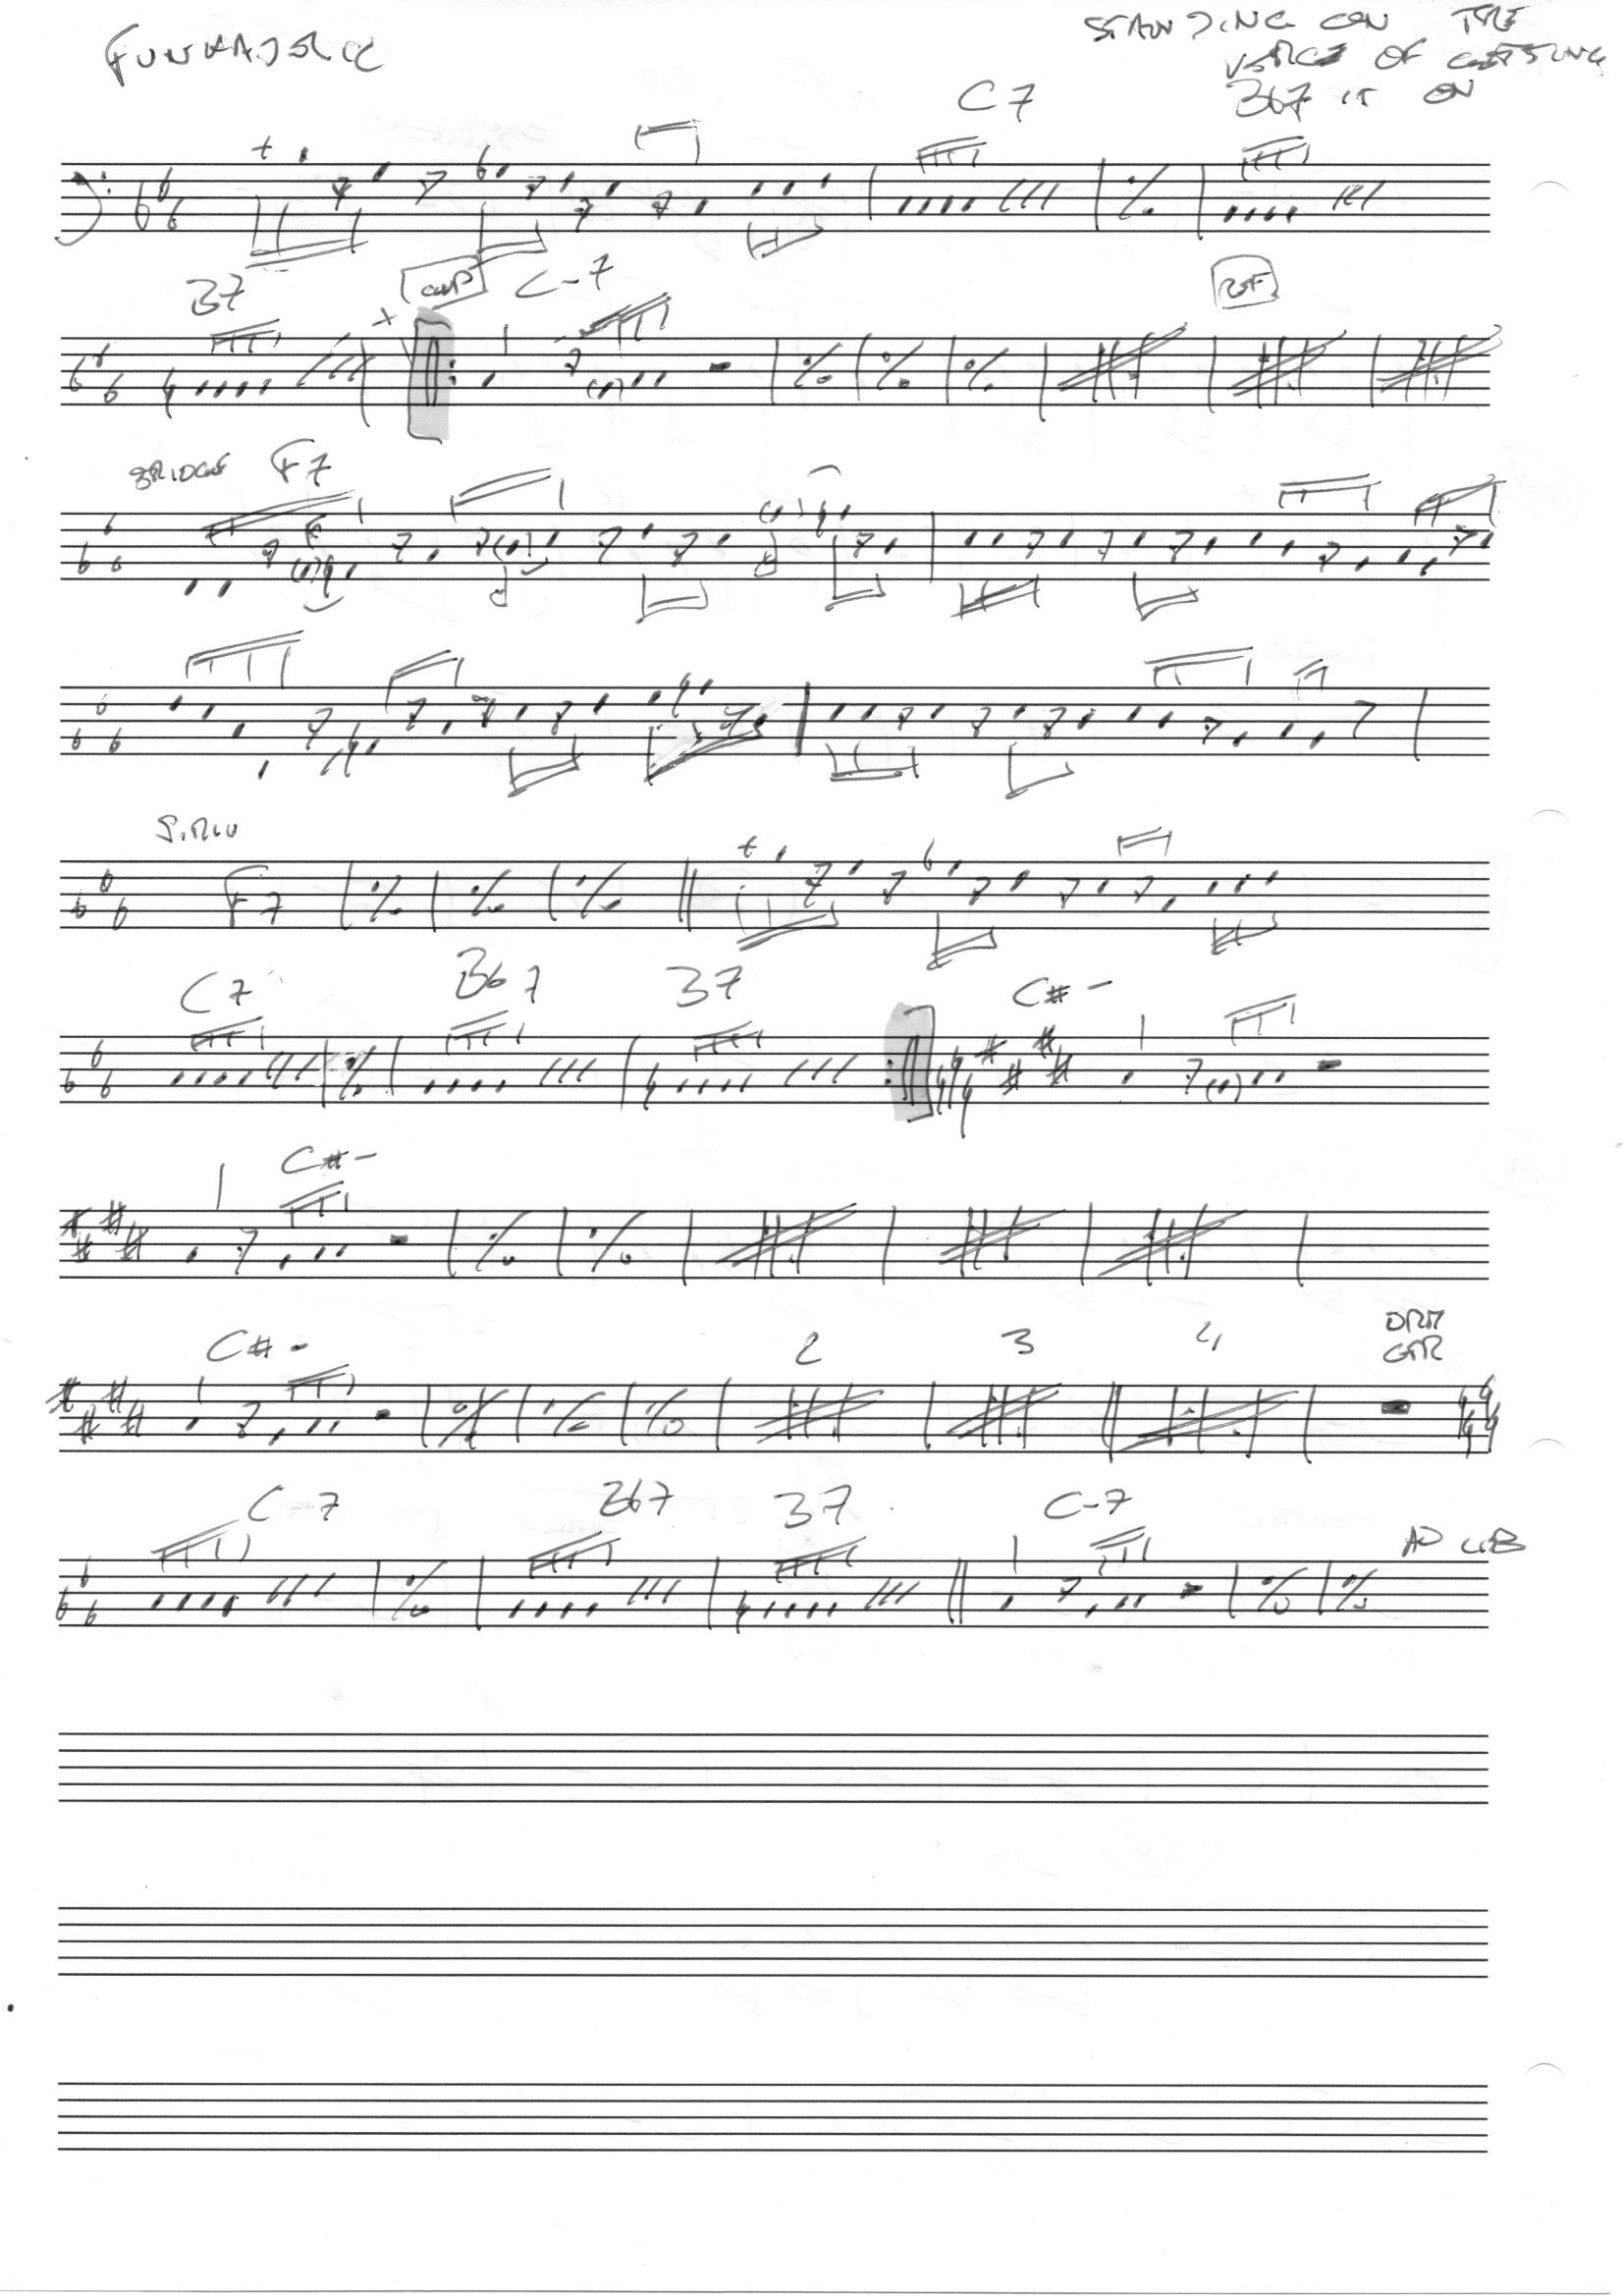 FUNKADELIC
STANDING ON THE
VERGE OF GETTING
IT ON
C7 Bb7
B7 C-7
BRIDGE F7
F7
C7 Bb7 B7 C#-
C#-
C#- 2 3 4 DRM
GTR
C-7 Bb7 B7 C-7
AD LIB